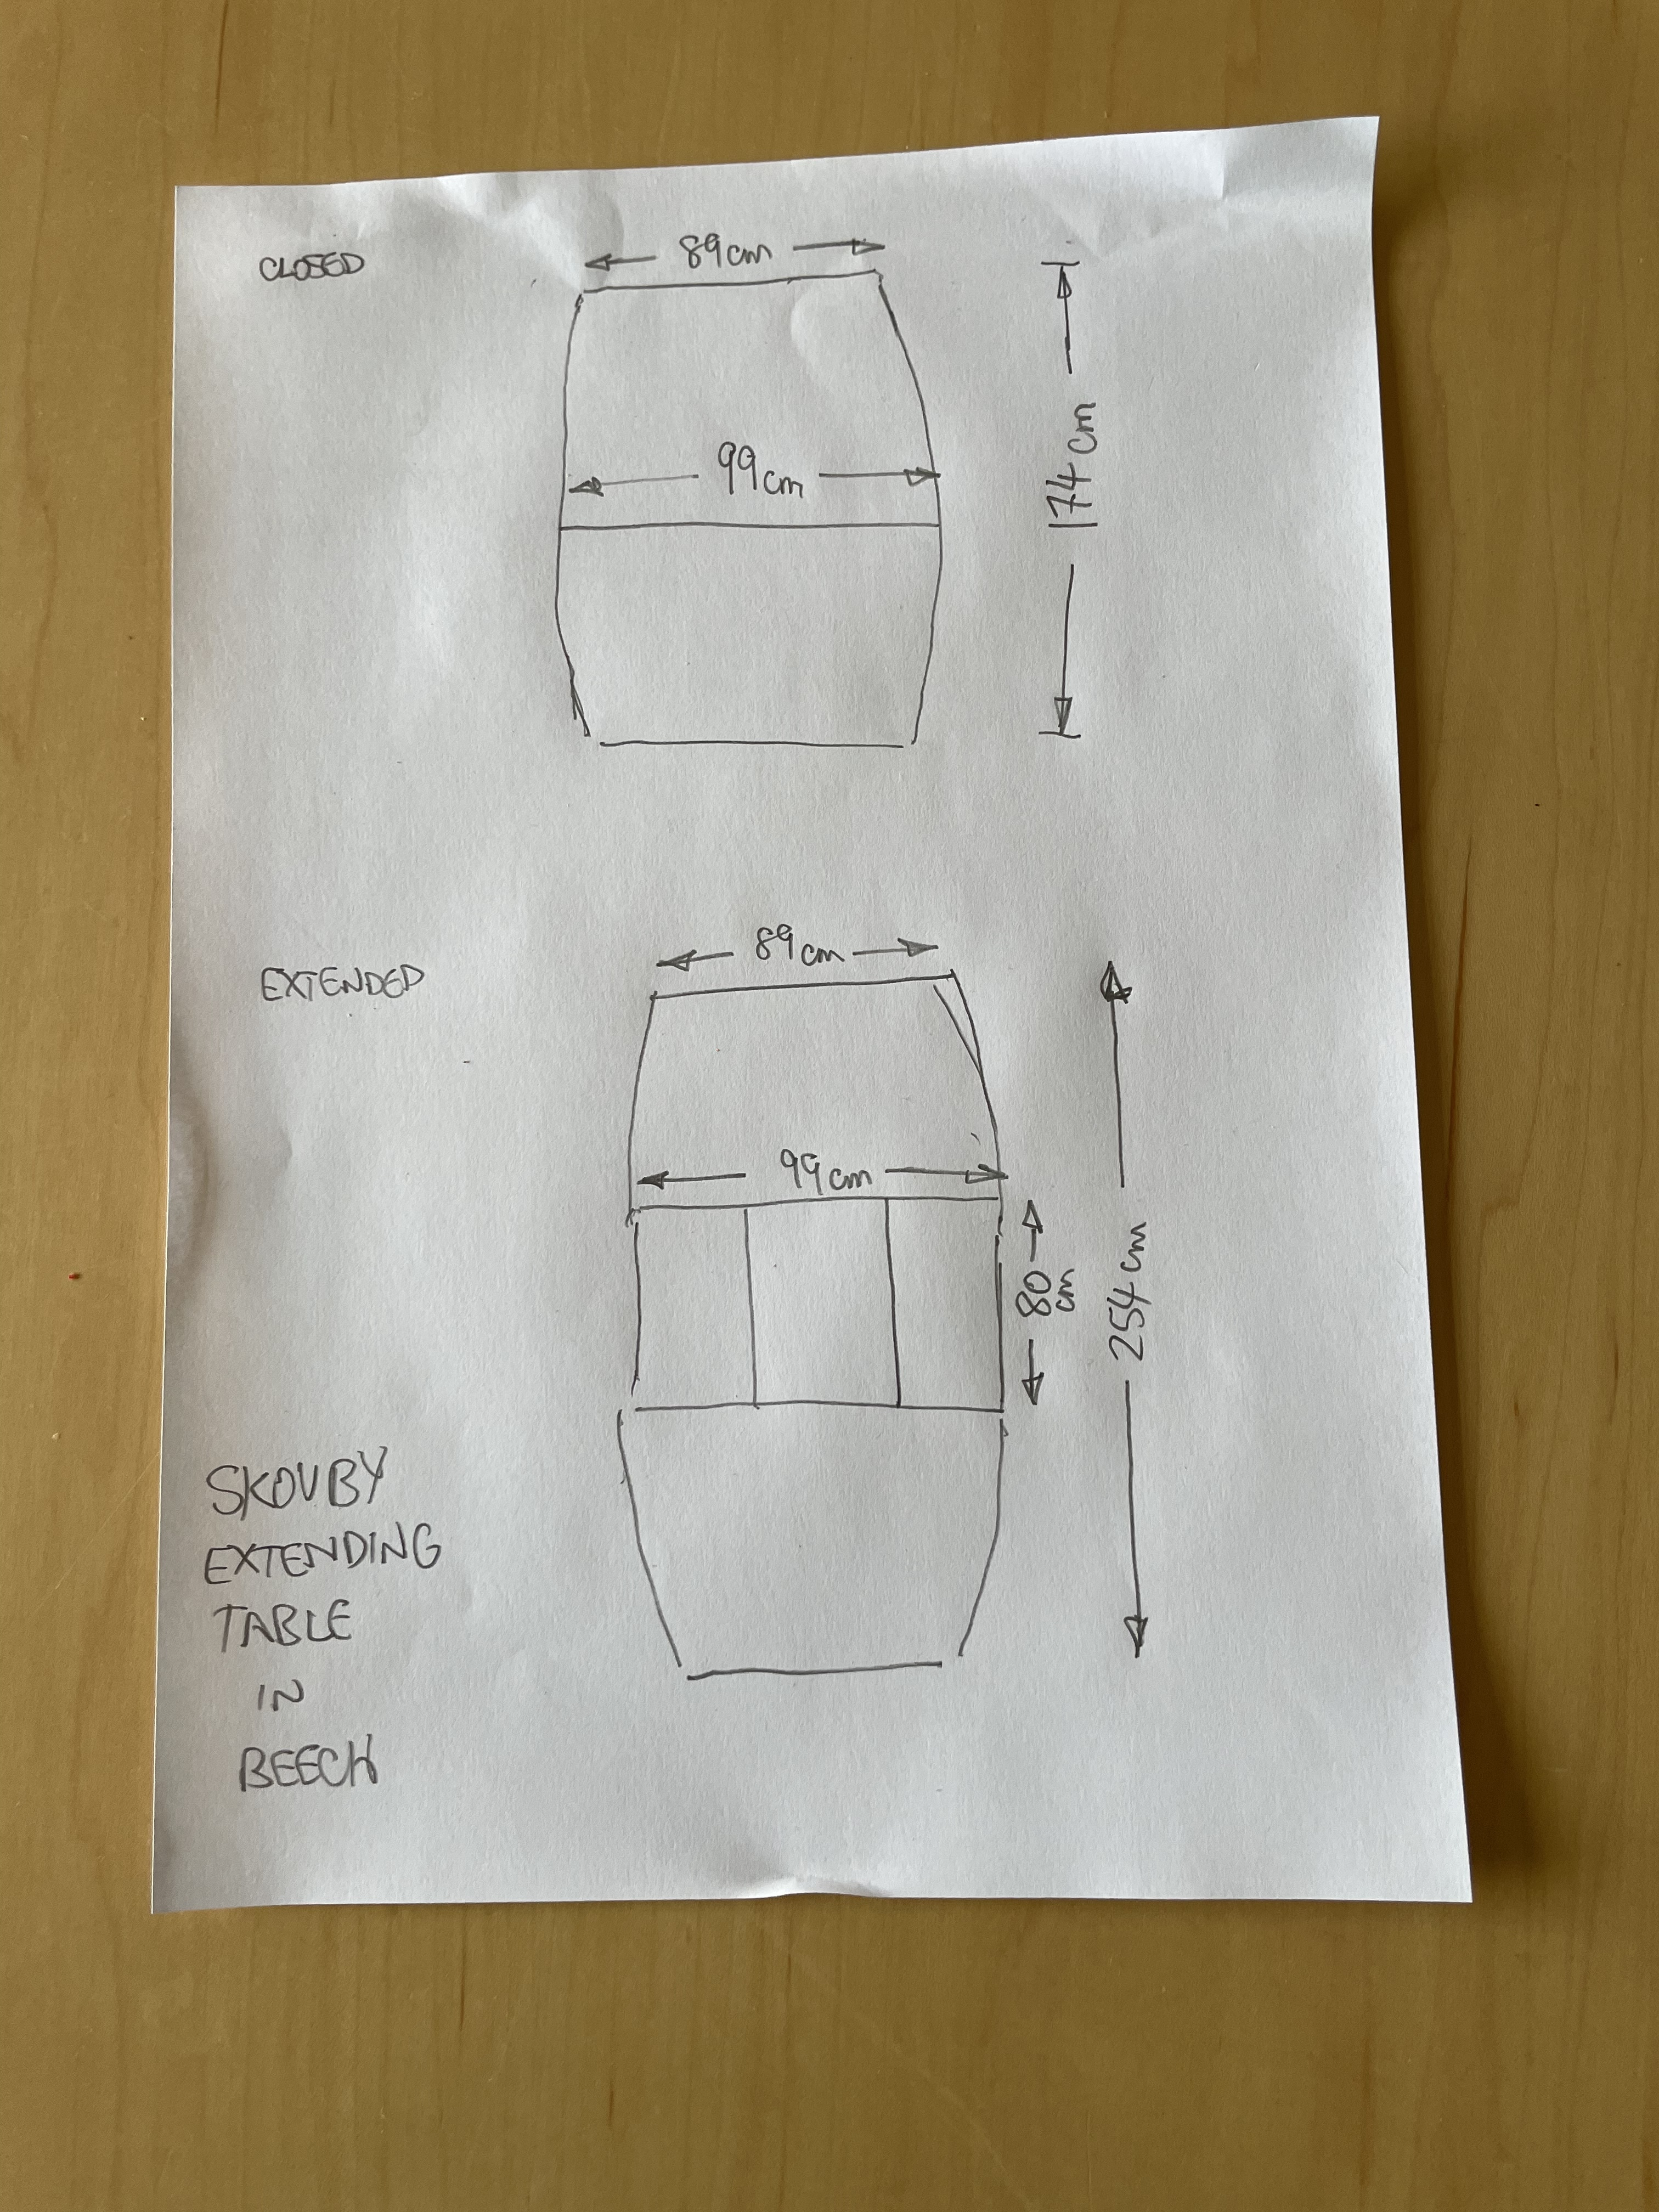 CLOSED
89cm
99cm
174cm
EXTENDED
89cm
99cm
80cm
254cm
SKOVBY
EXTENDING
TABLE
IN
BEECH